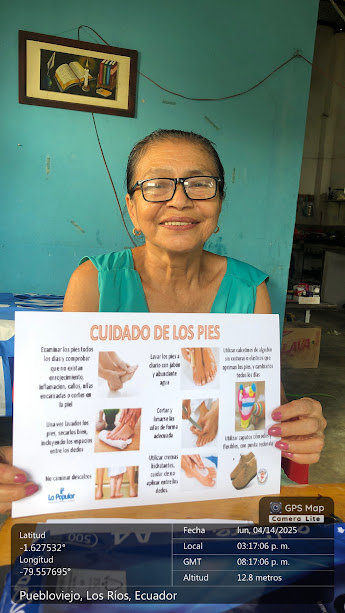 CUIDADO DE LOS PIES
Examinar los pies todos
los días y comprobar
que no existan
enrojecimiento,
inflamacion, callos, uñas
encarnadas o cortes en
la piel
Lavar los pies a
diario con jabón
y abundante
agua
Utilizar calcetines de algodón
sin costuras o elásticos que
opriman los pies, y cambiarlos
todos los días
Una vez lavados los
pies, secarlos bien,
incluyendo los espacios
entre los dedos
Cortar y
limarse las
uñas de forma
adecuada
No caminar descalzos
Utilizar cremas
hidratantes,
cuidar de no
aplicar entre los
dedos.
Utilizar zapatos cómodos y
flexibles, con punta redonda
Lo Popular
GPS Map
Camera Lite
Latitud
-1.627532°
Longitud
-79.557695°
Fecha lun, 04/14/2025
Local 03:17:06 p. m.
GMT 08:17:06 p. m.
Altitud 12.8 metros
Puebloviejo, Los Ríos, Ecuador